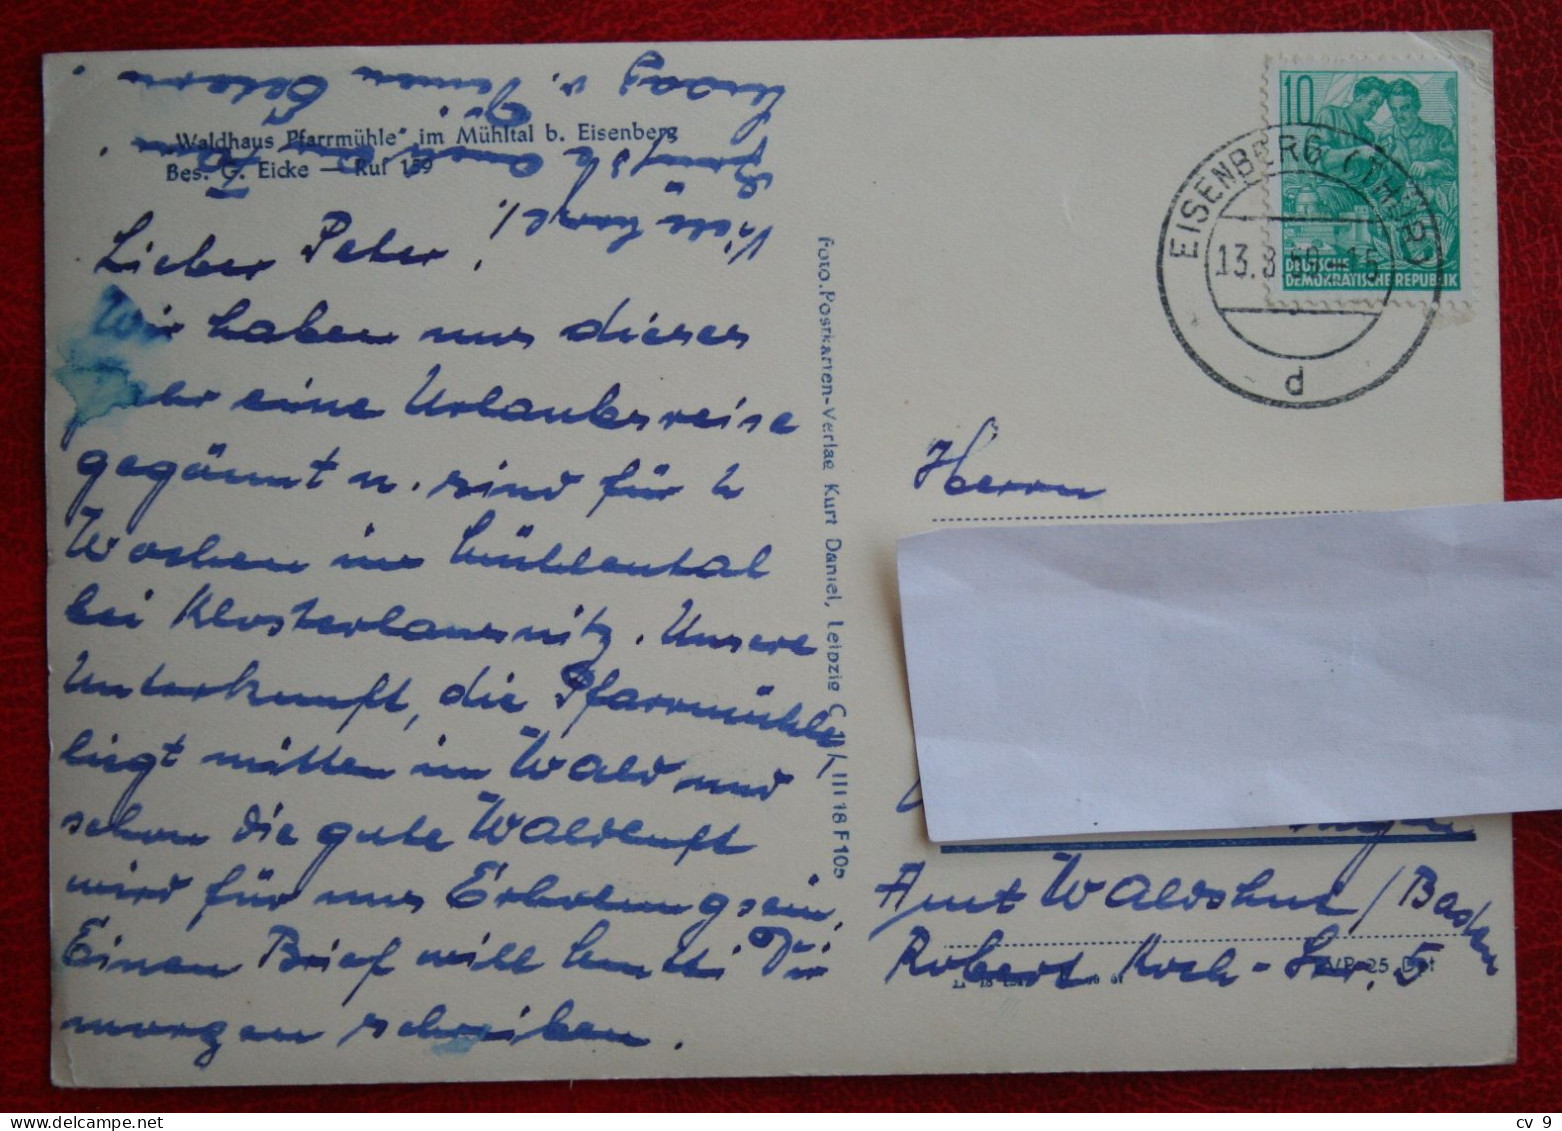 „Waldhaus Pfarrmühle" im Mühltal b. Eisenberg
Bes. G. Eicke — Ruf 159
Lieber Peter!
Wir haben uns dieses
Jahr eine Urlaubsreise
gegönnt u. sind für 2
Wochen im Mühlental
bei Klosterlausnitz. Unsere
Unterkunft, die Pfarrmühle
liegt mitten im Wald und
schon die gute Waldluft
wird für uns Erholung sein.
Einen Brief will Dir
morgen schreiben.
Viele herzl.
Grüsse auch
v. Deinen Eltern
Foto.Postkarten-Verlag Kurt Daniel, Leipzig C 1 / III 18 F 105
10
DEUTSCHE
DEMOKRATISCHE REPUBLIK
EISENBERG (THÜR)
13.8.59-15
d
Herrn
Amt Waldshut/Baden
Robert Koch-Str. 5